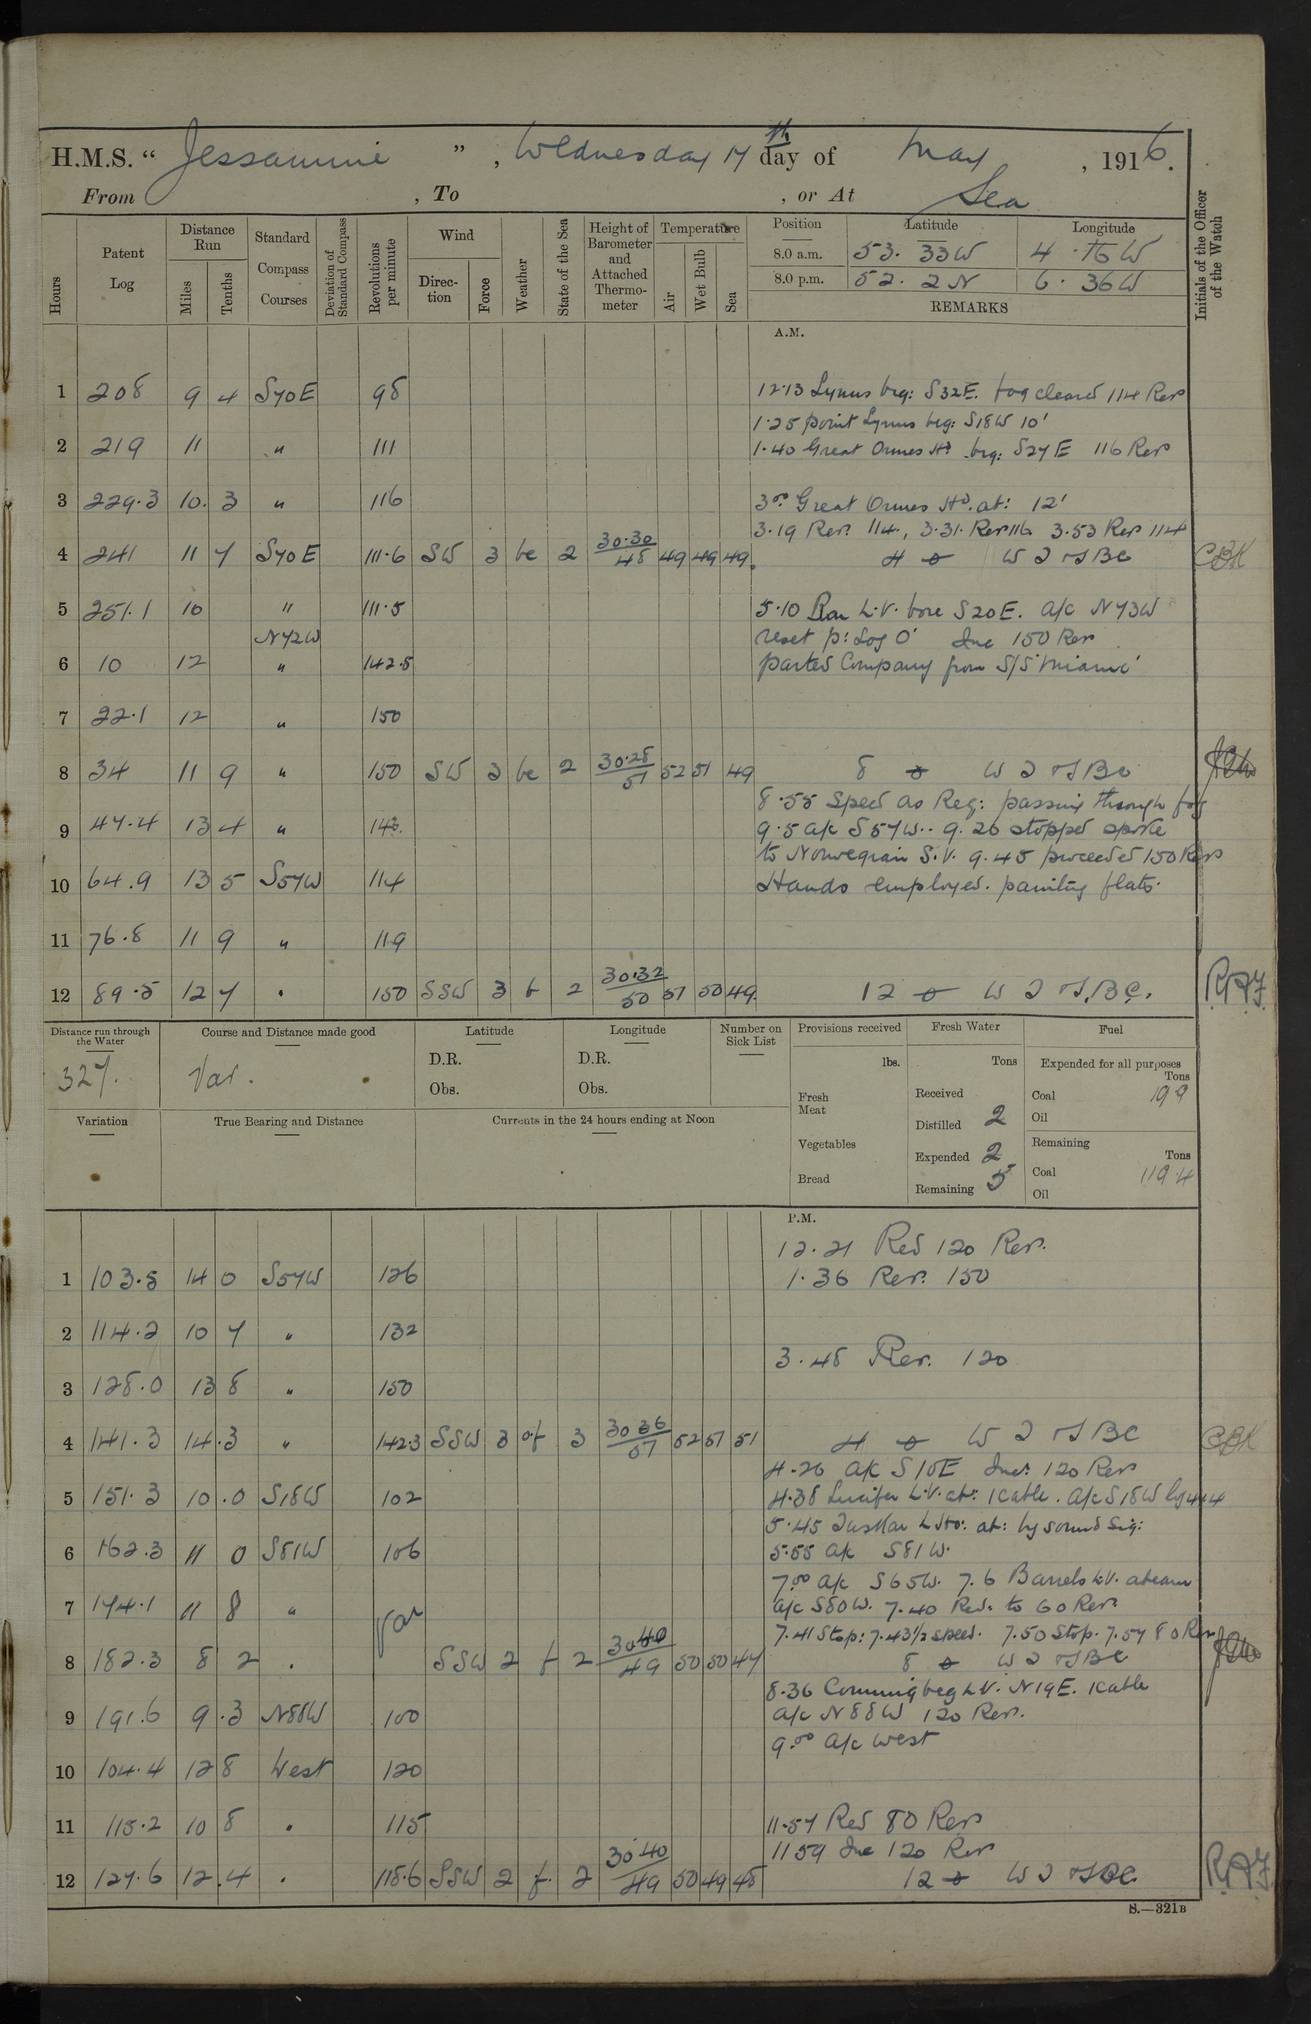 H.M.S. “ Jessamine ” , Wednesday 17th day of May , 1916.
From , To , or At Sea
Hours
Patent Log
Distance Run
Miles
Tenths
Standard Compass Courses
Deviation of Standard Compass
Revolutions per minute
Wind
Direction
Force
Weather
State of the Sea
Height of Barometer and Attached Thermometer
Temperature
Air
Wet Bulb
Sea
Position Latitude Longitude
8.0 a.m. 53. 33W 4. 16W
8.0 p.m. 52. 2N 6. 36W
REMARKS
Initials of the Officer of the Watch
A.M.
1 208 9 4 S70E 98 12.13 Lynus brg: S32E. fog cleared 114 Revs
1.25 point Lynus brg: S18W 10'
2 219 11 " 111 1.40 Great Ormes Hd brg: S27E 116 Revs
3 229.3 10. 3 " 116 3.00 Great Ormes Hd. at: 12'
3.19 Rev. 114, 3.31. Rev 116 3.53 Rev 114
4 241 11 7 S70E 111.6 SW 3 bc 2 30.30 48 49 49 49 4 W T BC CBK
5 251.1 10 " 111.5 5.10 Bar L.V. bore S20E. a/c N73W
N72W reset p: Log 0' Inc 150 Rev
6 10 12 " 142.5 parted Company from S/S 'Miami'
7 22.1 12 " 150
8 34 11 9 " 150 SW 3 bc 2 30.28 51 52 51 49 8 W T BC
8.55 Speed as Req: passing through fog
9 47.4 13 4 " 143. 9.5 a/c S57W.. 9.26 stopped spoke
to Norwegian S.V. 9.45 proceeded 150 Revs
10 64.9 13 5 S57W 114 Hands employed. painting flats.
11 76.8 11 9 " 119
12 89.5 12 7 " 150 SSW 3 b 2 30.32 50 51 50 49 12 W T.B.C. R.A.F.
Distance run through the Water
327.
Course and Distance made good
Var.
Latitude
D.R.
Obs.
Longitude
D.R.
Obs.
Number on Sick List
Provisions received
lbs.
Fresh Meat
Vegetables
Bread
Fresh Water
Tons
Received
Distilled 2
Expended 2
Remaining 5
Fuel
Expended for all purposes
Tons
Coal 19 9
Oil
Remaining
Tons
Coal 119.4
Oil
Variation
True Bearing and Distance
Currents in the 24 hours ending at Noon
P.M.
12.21 Red 120 Rev.
1 103.5 14 0 S57W 126 1.36 Rev. 150
2 114.2 10 7 " 132
3.48 Rev. 120
3 128.0 13 8 " 150
4 141.3 14.3 " 142.3 SSW 3 of 3 30 36 51 52 51 51 4 W T BC CBK
4.26 a/c S10E Inc: 120 Rev
5 151.3 10.0 S18W 102 4.38 Lucifer L.V. at: 1 cable. a/c S18W log 44
5.45 Tuskar L Ho: at: by sound Sig:
6 162.3 11 0 S81W 106 5.55 a/c S81W.
7.00 a/c S65W. 7.6 Barrels L.V. abeam
7 174.1 11 8 " Var a/c S80W. 7.40 Red. to 60 Rev.
7.41 Stop: 7.43 1/2 speed. 7.50 Stop. 7.57 80 Rev
8 182.3 8 2 " SSW 2 f 2 30 40 49 50 50 47 8 W T BC
8.36 Conning beg L.V. N19E. 1 cable
9 191.6 9.3 N88W 100 a/c N88W 120 Rev.
9.00 a/c west
10 104.4 12 8 West 120
11 115.2 10 8 " 115 11.57 Red 80 Revs
11 59 Inc 120 Rev
12 127.6 12.4 " 118.6 SSW 2 f. 2 30 40 49 50 49 48 12 W T BC. R.A.F.
S.—321B